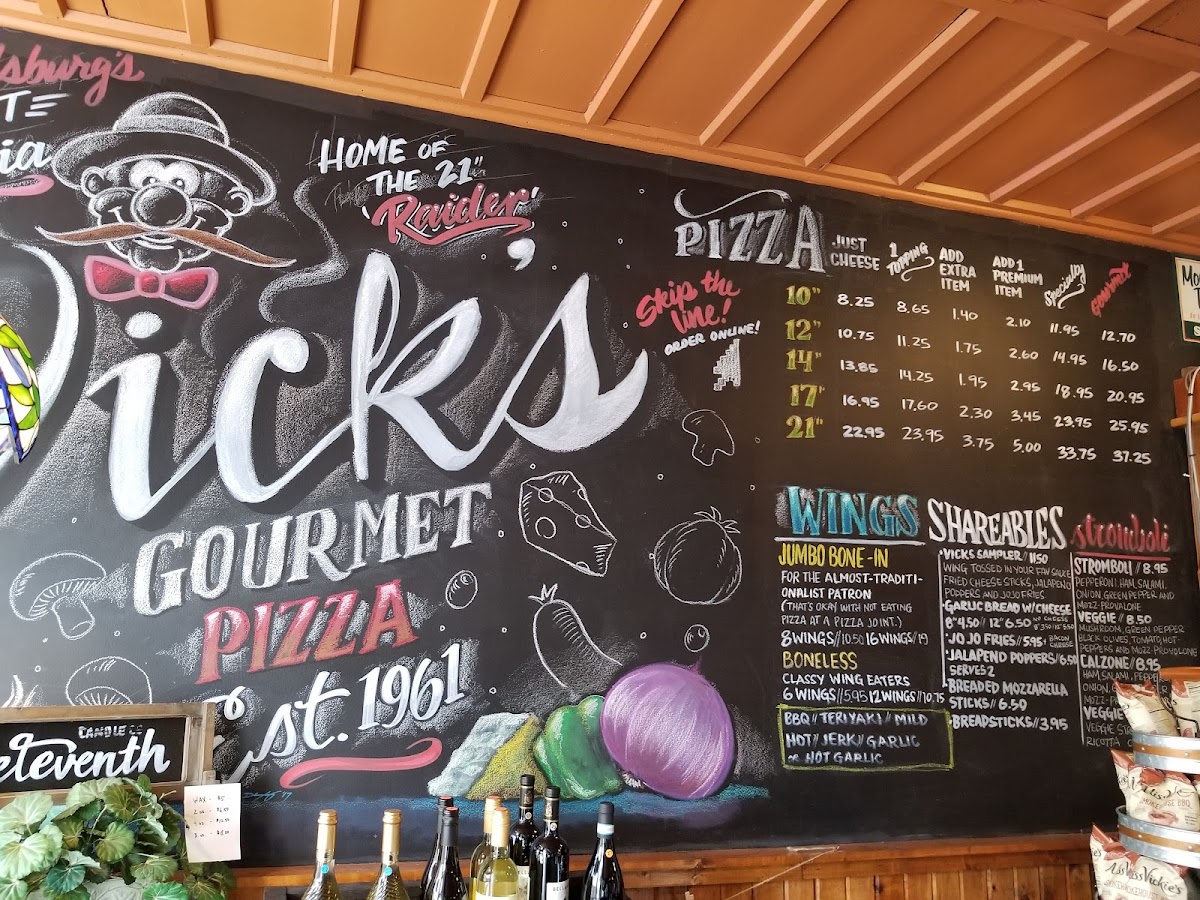 sburg's
TE
ia
HOME OF
THE 21"
'Raider'
Vick's
GOURMET
PIZZA
Est. 1961
PIZZA
JUST CHEESE
1 TOPPING
ADD EXTRA ITEM
ADD 1 PREMIUM ITEM
Specialty
Gourmet
10" 8.25 8.65 1.40 2.10 11.95 12.70
12" 10.75 11.25 1.75 2.60 14.95 16.50
14" 13.85 14.25 1.95 2.95 18.95 20.95
17" 16.95 17.60 2.30 3.45 23.95 25.95
21" 22.95 23.95 3.75 5.00 33.75 37.25
Skip the
line!
ORDER ONLINE!
WINGS
JUMBO BONE-IN
FOR THE ALMOST-TRADITI-
ONALIST PATRON
(THAT'S OKAY WITH NOT EATING
PIZZA AT A PIZZA JOINT.)
8 WINGS // 10.50 16 WINGS // 19
BONELESS
CLASSY WING EATERS
6 WINGS // 5.95 12 WINGS // 10.75
BBQ // TERIYAKI // MILD
HOT // JERK // GARLIC
or HOT GARLIC
SHAREABLES
VICKS SAMPLER // 11.50
WING TOSSED IN YOUR FAV SAUCE
FRIED CHEESE STICKS, JALAPENO
POPPERS AND JOJO FRIES
GARLIC BREAD W/CHEESE
8" 4.50 // 12" 6.50
JO JO FRIES // 5.95 + BACON,
CHEESE
JALAPENO POPPERS / 6.50
SERVES 2
BREADED MOZZARELLA
STICKS // 6.50
BREADSTICKS // 3.95
stromboli
STROMBOLI // 8.95
PEPPERONI, HAM, SALAMI,
ONION, GREEN PEPPER AND
MOZZ-PROVALONE
VEGGIE // 8.50
MUSHROOM, GREEN PEPPER
BLACK OLIVES, TOMATO, HOT
PEPPERS AND MOZZ PROVOLONE
CALZONE // 8.95
HAM, SALAMI, PEPPE
ONION, G
MOZZ-P
VEGGIE
VEGGIE STR
RICOTTA
CANDLE CO
eteventh
Miss Vickie's
SMOKEHOUSE BBQ
Miss Vickie's